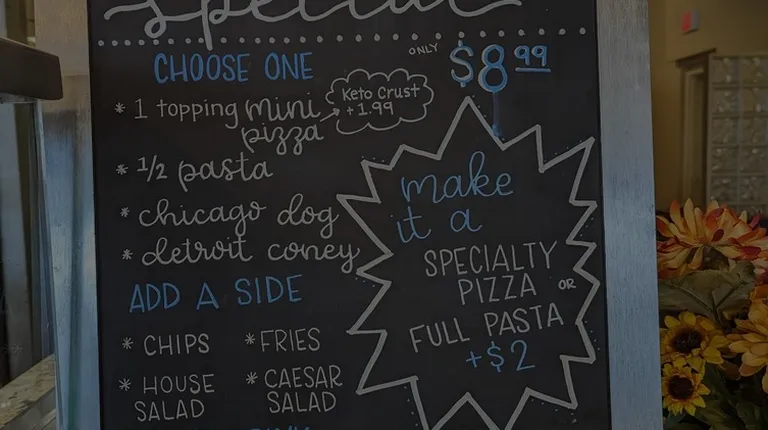 special
ONLY
$8.99
CHOOSE ONE
* 1 topping mini
pizza
Keto Crust
+1.99
* 1/2 pasta
* chicago dog
* detroit coney
make
it a
SPECIALTY
PIZZA OR
FULL PASTA
+$2
ADD A SIDE
* CHIPS
* FRIES
* HOUSE
SALAD
* CAESAR
SALAD